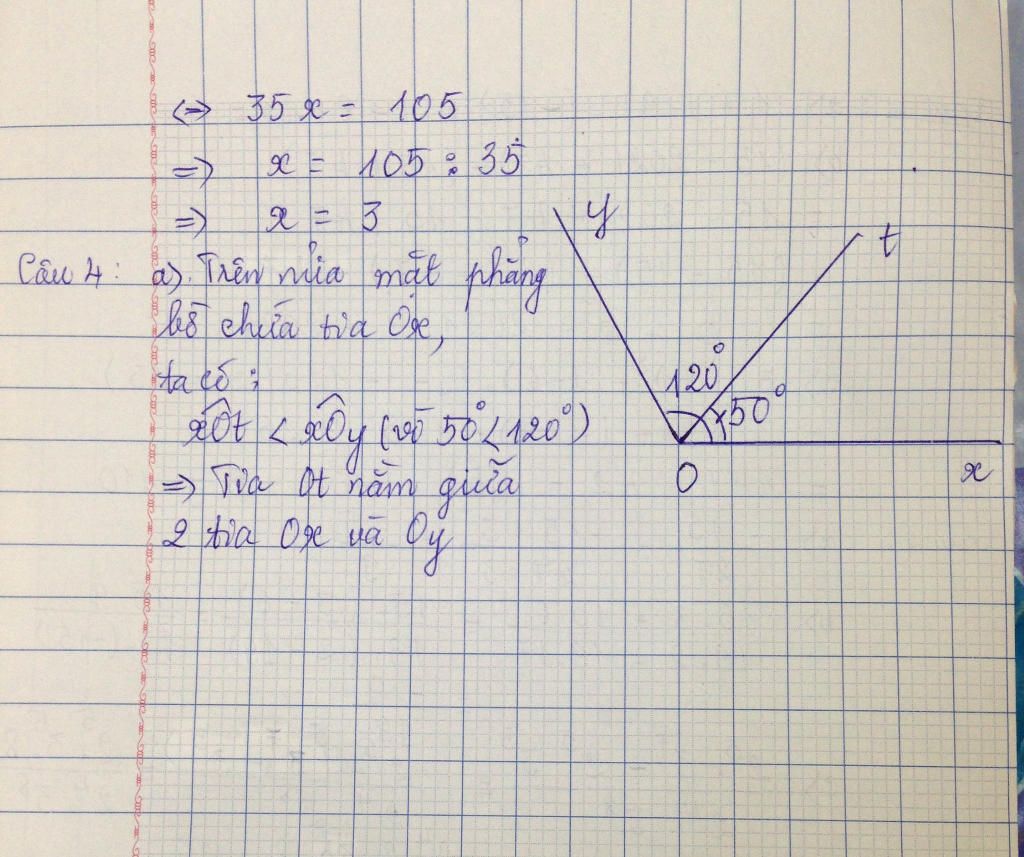 ⇔ 35x = 105
⇒ x = 105 : 35
⇒ x = 3
Câu 4: a). Trên nửa mặt phẳng
bờ chứa tia Ox,
ta có:
xÔt < xÔy (vì 50° < 120°)
⇒ Tia Ot nằm giữa
2 tia Ox và Oy
y
t
120°
50°
O
x